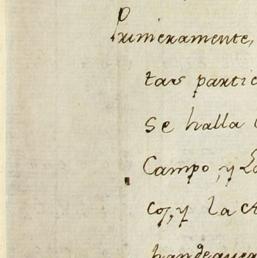 Primeramente,
tas partic
se halla
Campo, y La
co, y la c